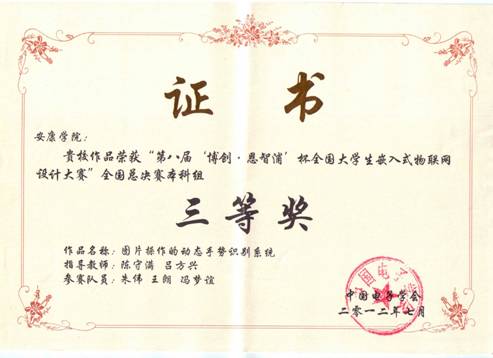 证书
安康学院：
贵校作品荣获“第八届‘博创·恩智浦’杯全国大学生嵌入式物联网
设计大赛”全国总决赛本科组
三等奖
作品名称：图片操作的动态手势识别系统
指导教师：陈守满 吕方兴
参赛队员：朱伟 王朗 冯梦谊
中国电子学会
二〇一二年七月